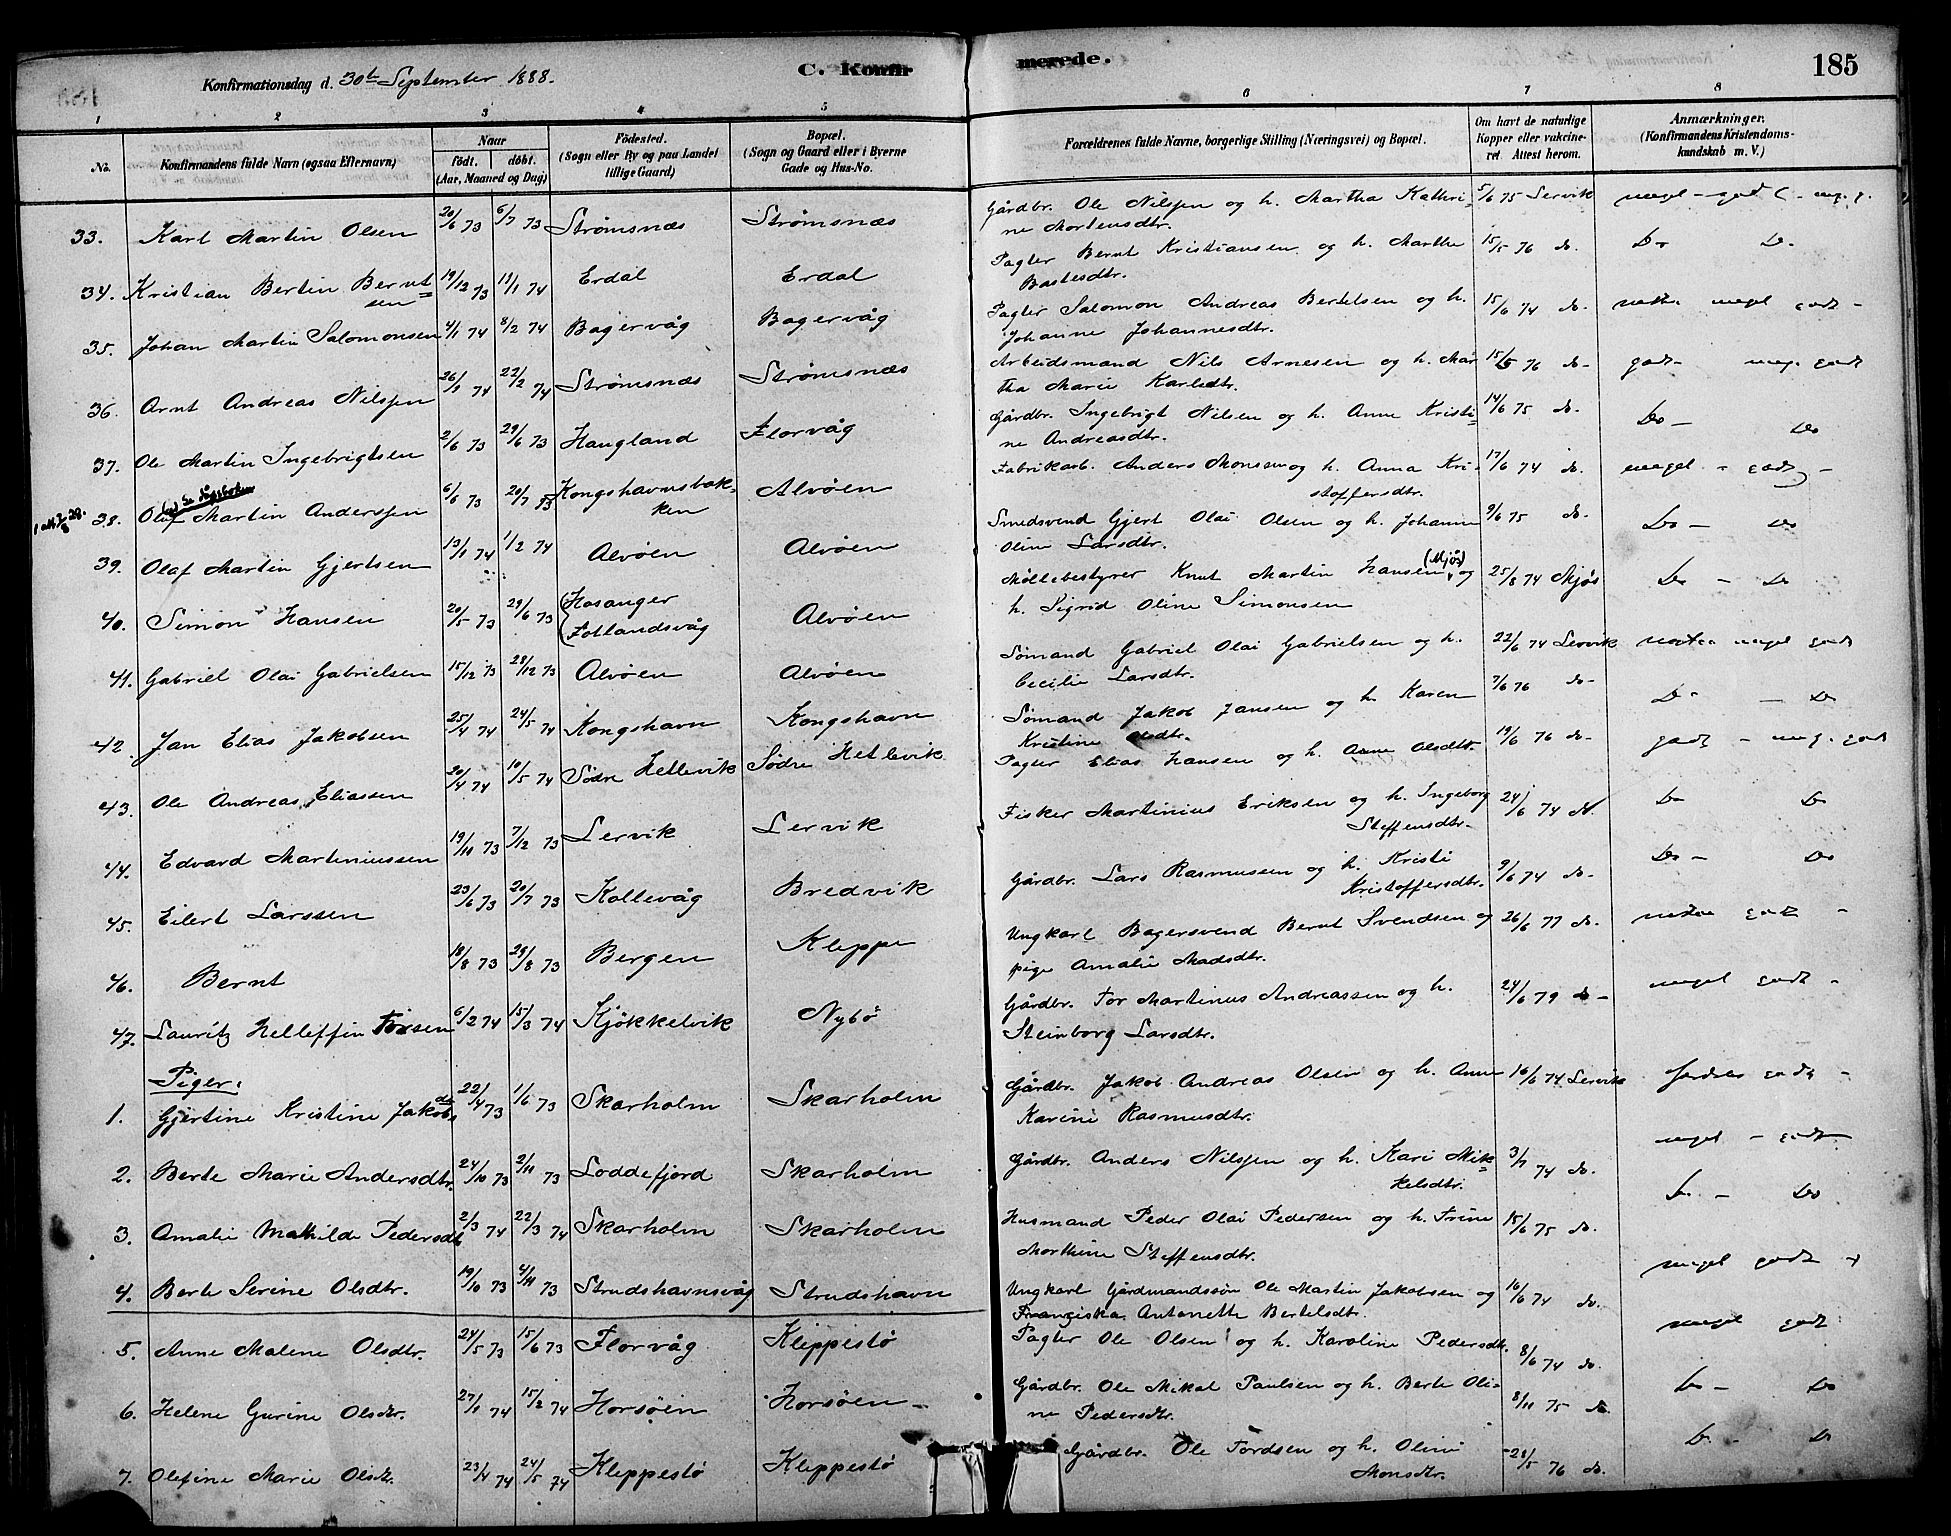 Konfirmationsdag d. 30te September 1888.
C. Konfirmerede.
185
1 2 3 4 5 6 7 8
No. Konfirmandens fulde Navn (ogsaa Efternavn) Naar født. døbt. (Aar, Maaned og Dag) Fødested. (Sogn eller By og paa Landet tillige Gaard) Bopæl. (Sogn og Gaard eller i Byerne Gade og Hus-No. Forældrenes fulde Navne, borgerlige Stilling (Næringsvei) og Bopæl. Om havt de naturlige Kopper eller vakcineret Attest herom. Anmærkninger. (Konfirmandens Kristendomskundskab m. V.)
33. Karl Martin Olsen 20/6 73 6/7 73 Strømsnæs Strømsnæs Gårdbr. Ole Nilssen og h. Martha Kathrine Mortensdtr. 5/6 75 Lervik meget godt
34. Kristian Bertin Berntsen 19/12 73 11/1 74 Erdal Erdal Pagter Bernt Kristiansen og h. Marthe Bastesdtr. 15/5 76 do. Do Do
35. Johan Martin Salomonsen 4/1 74 8/2 74 Bagervåg Bagervåg Pagter Salomon Andreas Bertelsen og h. Johanne Johannesdtr. 15/6 74 do. meget godt
36. Arnt Andreas Nilssen 26/1 74 22/2 74 Strømsnæs Strømsnæs Arbeidsmand Nils Arnesen og h. Martha Marie Karlsdtr. 15/5 76 do. godt meg. godt
37. Ole Martin Ingebrigtsen 2/6 73 29/6 73 Haugland Florvåg Gårdbr. Ingebrigt Nilsen og h. Anne Kristine Andreasdtr. 14/6 75 do. Do Do
38. Oluf Martin Anderssen 6/6 73 20/7 73 Kongshavnsbakken Alvøen Fabrikarb. Anders Monsen og h. Anna Kristoffersdtr. 17/6 74 do. meget godt
39. Olaf Martin Gjertsen 13/1 74 1/2 74 Alvøen Alvøen Smedsvend Gjert Olai Olsen og h. Johanne Oline Larsdtr. 9/6 75 do. Do Do
40. Simon Hansen 20/5 73 29/6 73 Hosanger Fotlandsvåg Alvøen Møllebestyrer Knut Martin Hansen (Mjøs) og h. Sigrid Oline Simonsen 25/8 74 Mjøs Do Do
41. Gabriel Olai Gabrielsen 15/12 73 28/12 73 Alvøen Alvøen Sømand Gabriel Olai Gabrielsen og h. Cecilie Larsdtr. 22/6 74 Lervik næsten meget godt
42. Jan Elias Jakobsen 25/4 74 24/5 74 Kongshavn Kongshavn Sømand Jakob Jansen og h. Karen Kristine Olsdtr. 7/6 76 do. Do Do
43. Ole Andreas Eliassen 20/4 74 10/5 74 Södre Hetlevik Södre Hetlevik Pagter Elias Hansen og h. Anne Olsdtr. 19/6 76 do. godt meg. godt
44. Edvard Martiniussen 19/11 73 7/12 73 Lervik Lervik Fisker Martinius Eriksen og h. Ingeborg Steffensdtr. 24/6 74 do Do Do
45. Eilert Larssen 23/6 73 20/7 73 Kollevåg Bredvik Gårdbr. Lars Rasmussen og h. Kristi Kristoffersdtr. 9/6 74 do. Do Do
46. Bernt 18/8 73 29/8 73 Bergen Kleppe Ungkarl Bagersvend Bernt Svendsen og pige Amalie Madsdtr. 26/6 77 do. næsten godt
47. Lauritz Helleffin Torsen 6/2 74 15/3 74 Kjøkkelvik Nybø Gårdbr. Tor Martinus Andreassen og h. Steinborg Larsdtr. 24/6 79 do meget godt
Piger:
1. Gjertine Kristine Jakobsdtr 22/4 73 1/6 73 Skarholm Skarholm Gårdbr. Jakob Andreas Olsen og h. Anne Karine Rasmusdtr. 16/6 74 Lervik godt
2. Berte Marie Andersdtr. 24/10 73 2/11 73 Loddefjord Skarholm Gårdbr. Anders Nilssen og h. Kari Mikkelsdtr. 3/7 74 do. meget godt
3. Amalie Mathilde Pedersdtr 2/3 74 22/3 74 Skarholm Skarholm Husmand Peder Olai Pedersen og h. Trine Marthine Steffensdtr. 15/6 75 do. Do Do
4. Berte Serine Olsdtr. 19/10 73 4/11 73 Strudshavnsvåg Strudshavn Ungkarl Gårdmandssøn Ole Martin Jakobsen og Franziska Antonette Bertelsdtr. 16/6 74 do. meget godt
5. Anne Malene Olsdtr. 24/5 73 15/6 73 Florvåg Kleppestø Pagter Ole Olsen og h. Karoline Pedersdtr. 8/6 74 do. meget godt
6. Helene Gurine Olsdtr. 27/1 74 15/2 74 Horsøen Horsøen Gårdbr. Ole Mikal Paulsen og h. Berte Oline Pedersdtr. 8/11 75 do Do Do
7. Olefine Marie Olsdtr. 23/4 74 24/5 74 Kleppestø Kleppestø Gårdbr. Ole Tordsen og h. Oline Monsdtr. 28/5 76 do. Do Do